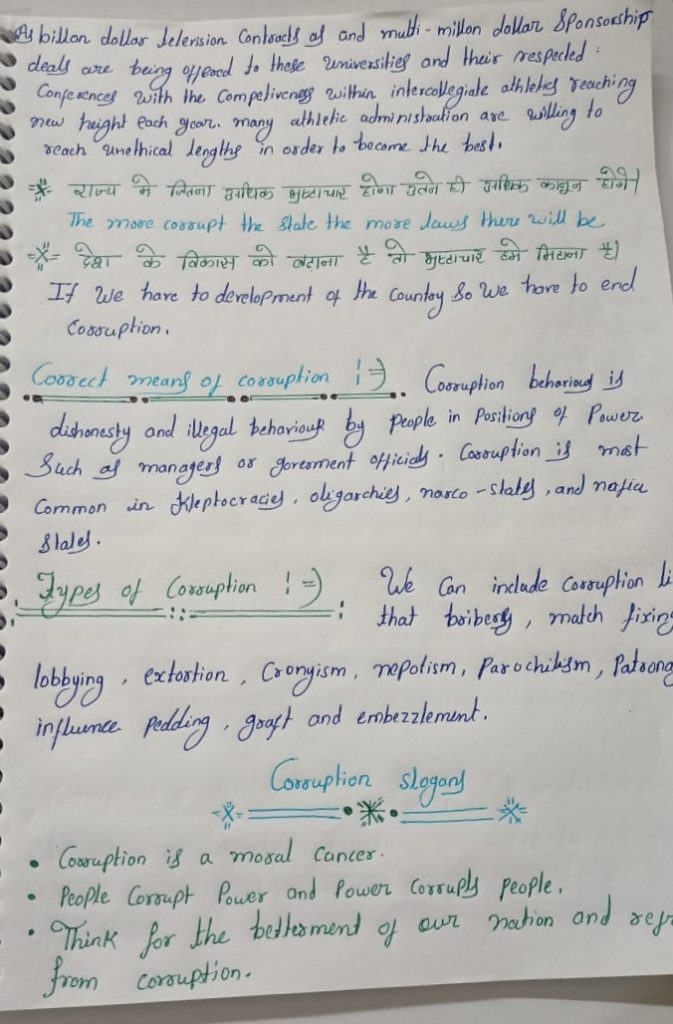 As billon dollar television Contracts as and multi-millon dollar Sponsorship
deals are being offerod to these Universities and their respected :
Conferences with the Competiveness within intercollegiate athletics reaching
new height each year. many athletic administration are willing to
reach unethical lengths in order to become the best.
राज्य मे जितना अधिक भ्रष्टाचार होगा उतने ही अधिक कानून होंगे।
The more corrupt the state the more laws there will be
देश के विकास को बढाना है तो भ्रष्टाचार हमे मिटाना है।
If We have to development of the Country So We have to end
Corruption.
Correct means of corruption !⇒ Corruption behavious is
dishonesty and illegal behaviour by people in Positions of Power.
Such as managers or goverment officials. Corruption is most
Common in kleptocracies, oligarchies, narco-states, and nafia
States.
Types of Corruption !⇒) We Can include corruption li
that bribery, match fixing
lobbying, extortion, Cronyism, nepotism, Parochilism, Patrong
influence pedding, graft and embezzlement.
Corruption slogans
• Corruption is a moral Cancer.
• People Corrupt Power and Power Corrupts people.
• Think for the betterment of our nation and refr
from corruption.